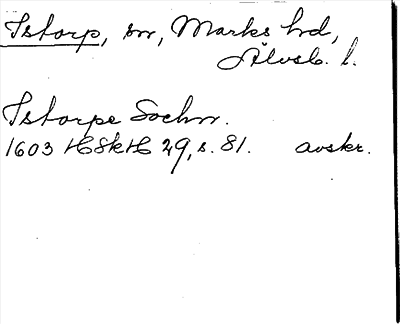 Istorp, sn, Marks hrd,
Älvsb. l.
Istorpe Sochn.
1603 HSkH 29, s. 81. avskr.